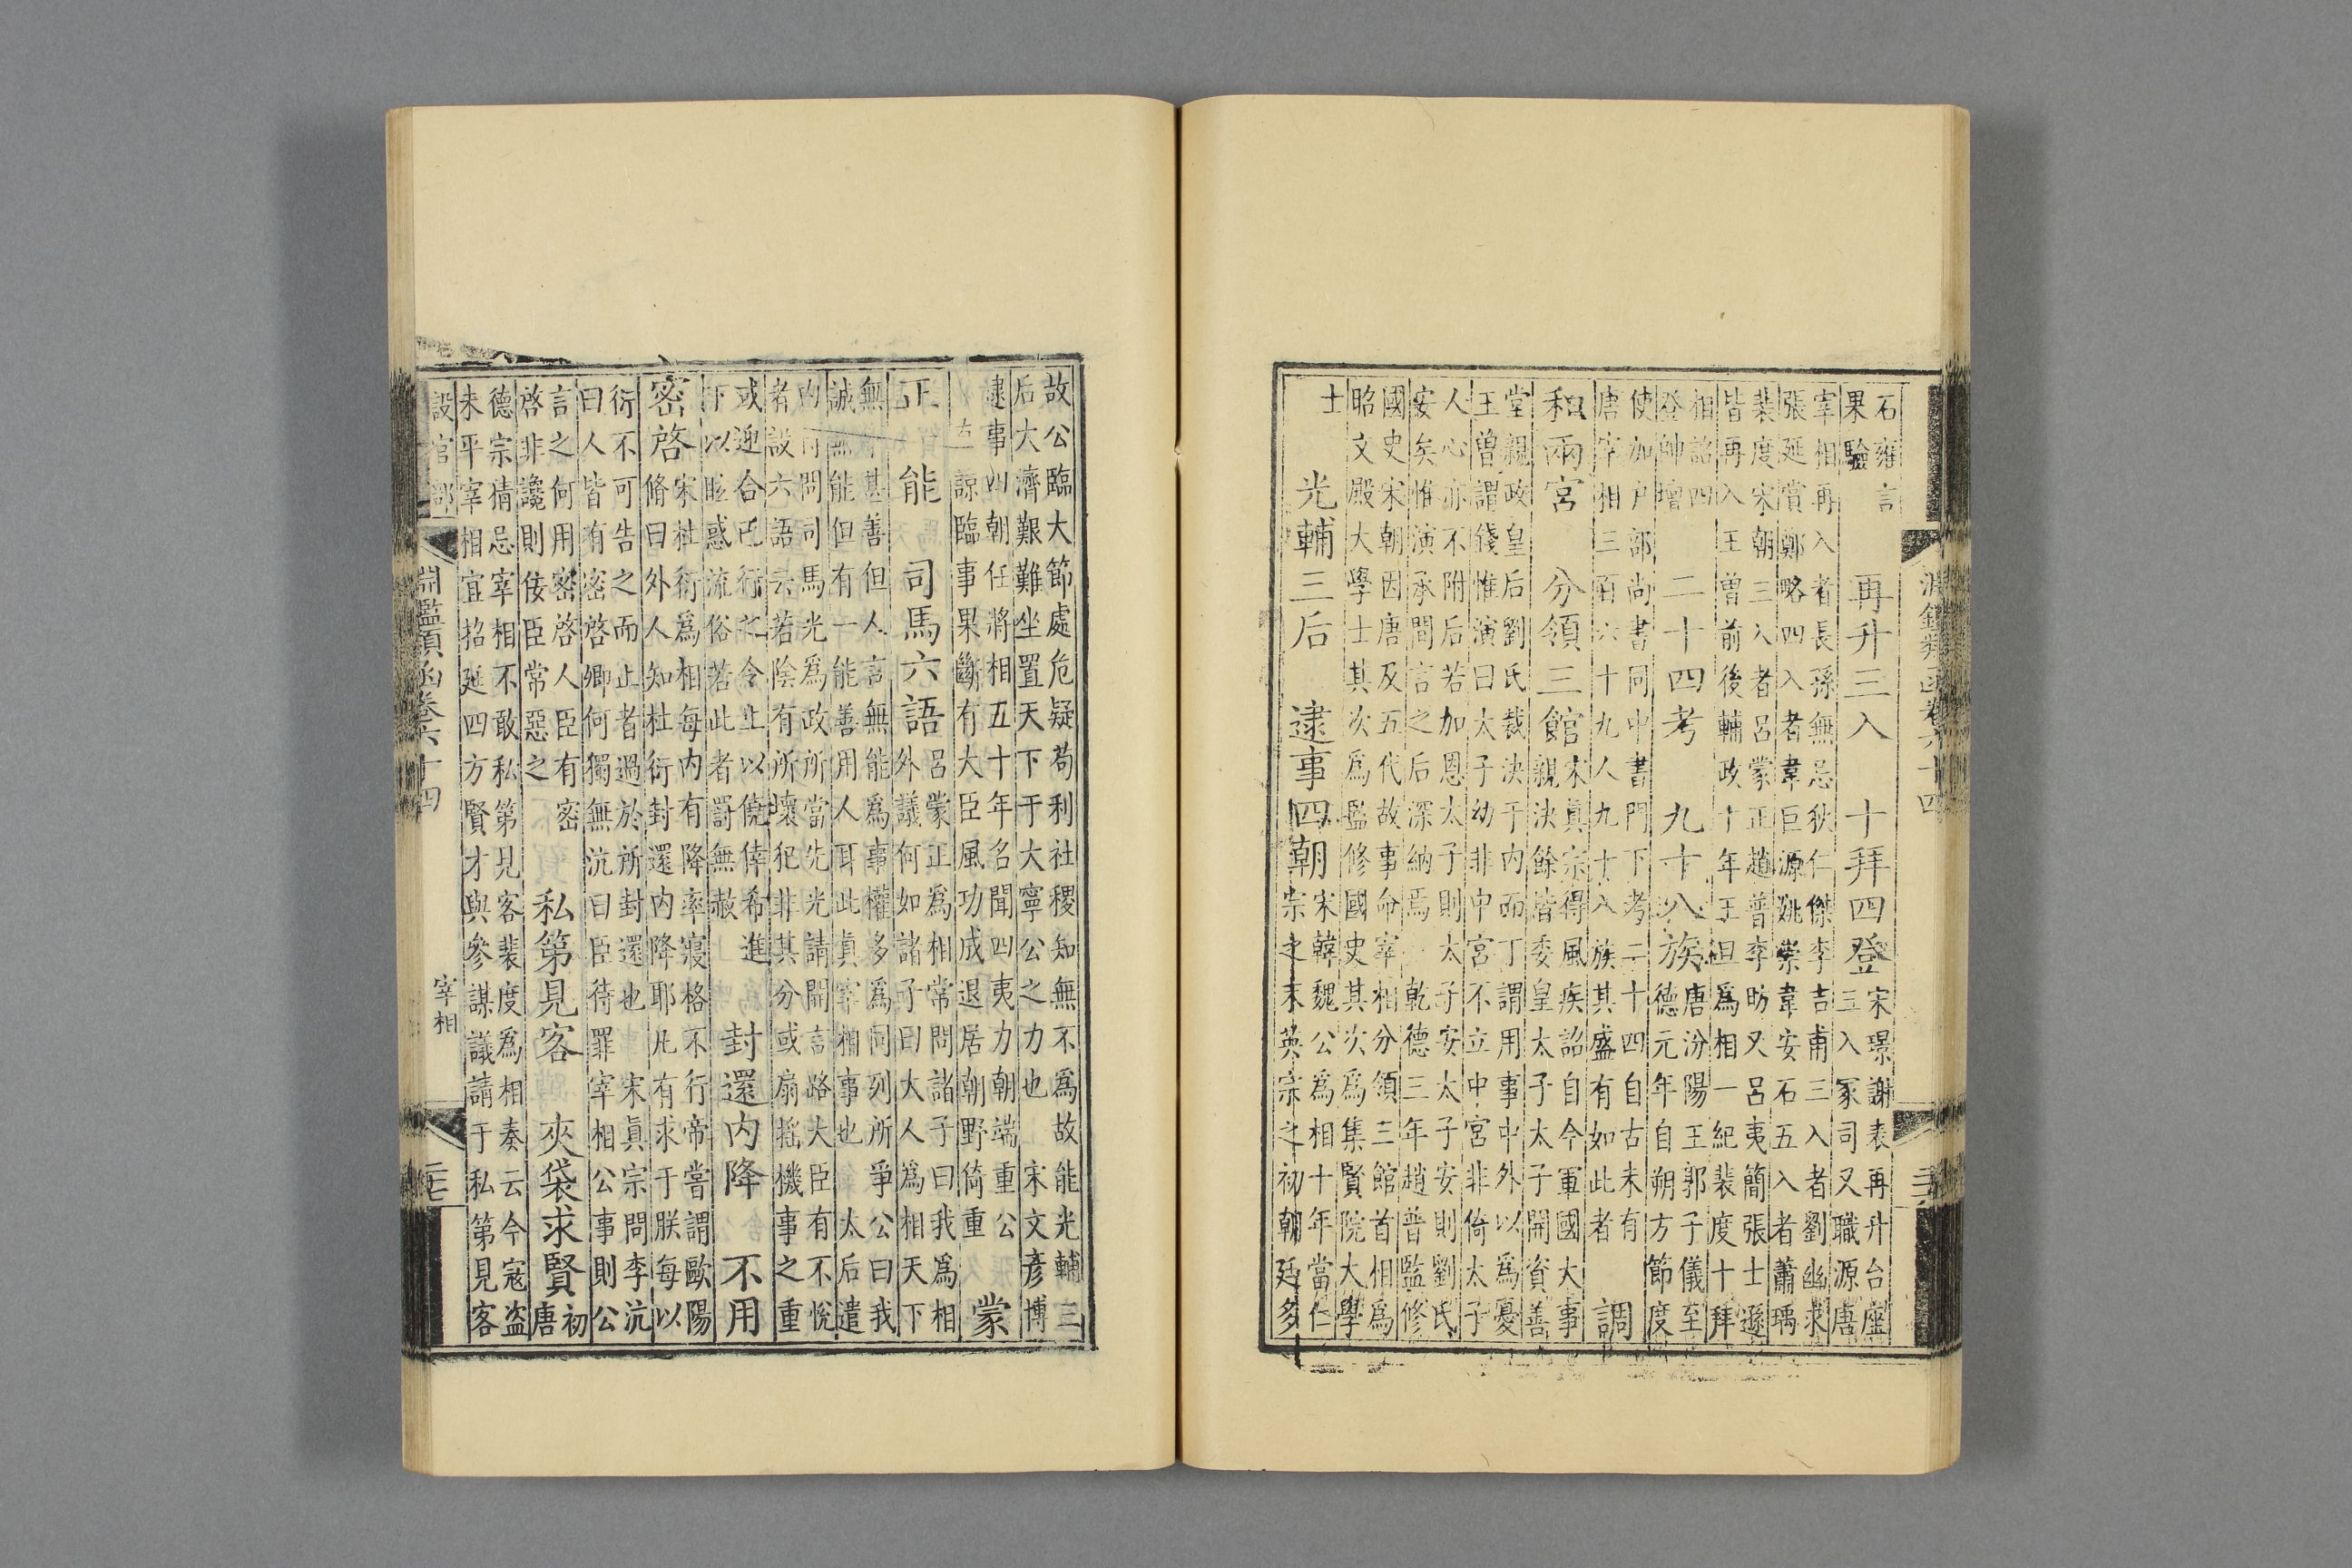 石雍言
果驗
再升三入　十拜四登
宋璟謝表再升台座
三入冡司又職源唐
宰相再入者長孫無忌狄仁傑李吉甫三入者劉幽求
張延賞鄭略四入者韋巨源姚崇韋安石五入者蕭瑀
裴度宋朝三入者呂蒙正趙普李昉又呂夷簡張士遜
皆再入王曾前後輔政十年王旦爲相一紀裴度十拜
相詔四
登帥壇
二十四考　九十八族
唐汾陽王郭子儀至
德元年自朔方節度
使加户部尚書同中書門下考二十四自古未有
唐宰相三百六十九人九十八族其盛有如此者
調
和兩宮　分領三館
宋真宗得風疾詔自今軍國大事
親決餘皆委皇太子太子開資善
堂親政皇后劉氏裁決于内而丁謂用事中外以爲憂
王曾謂錢惟演曰太子幼非中宮不立中宮非倚太子
人心亦不附后若加恩太子則太子安太子安則劉氏
安矣惟演承間言之后深納焉　乾德三年趙普監修
國史宋朝因唐及五代故事命宰相分領三館首相爲
昭文殿大學士其次爲監修國史其次爲集賢院大學
士
光輔三后　逮事四朝
宋韓魏公爲相十年當仁
宗之末英宗之初朝廷多
故公臨大節處危疑苟利社稷知無不爲故能光輔三
后大濟艱難坐置天下于大寧公之力也　宋文彥博
逮事四朝任將相五十年名聞四夷力朝端重公
諒臨事果斷有大臣風功成退居朝野倚重
蒙
正　能　司馬六語
呂蒙正爲相常問諸子曰我爲相
外議何如諸子曰大人爲相天下
無　甚善但人言無能爲事權多爲同列所爭公曰我
誠無能但有一能善用人耳此真宰相事也　太后遣
内　問司馬光爲政所當先光請開言路大臣有不悅
者設六語云若陰有所壞犯非其分或扇摇機事之重
或迎合已行之令上以僥倖希進
下以眩惑流俗若此者罰無赦
封還内降　不用
密啓
宋杜衍爲相每内有降率寢格不行帝嘗謂歐陽
脩曰外人知杜衍封還内降耶凡有求于朕每以
衍不可告之而止者過於所封還也　宋真宗問李沆
曰人皆有密啓卿何獨無沆曰臣待罪宰相公事則公
言之何用密啓人臣有密
啓非讒則佞臣常惡之
私第見客　夾袋求賢
初
唐
德宗猜忌宰相不敢私第見客裴度爲相奏云今寇盗
未平宰相宜招延四方賢才與參謀議請于私第見客
設官部
淵鑑類函卷六十四
宰相